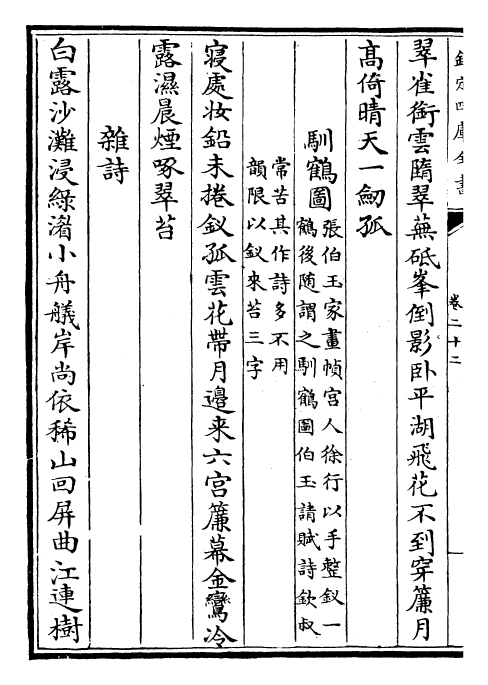 欽定四庫全書
卷二十二
翠雀銜雲隋翠蕪砥峯倒影卧平湖飛花不到穿簾月
高倚晴天一劒孤
馴鶴圖
張伯玉家畫幀宮人徐行以手整釵一
鶴後随謂之馴鶴圖伯玉請賦詩欽叔
常苦其作詩多不用
韻限以釵來苔三字
寝處妝鉛未捲釵孤雲花帶月邉来六宮簾幕金鸞冷
露濕晨煙啄翠苔
雜詩
白露沙灘浸綠渚小舟艤岸尚依稀山回屏曲江連樹